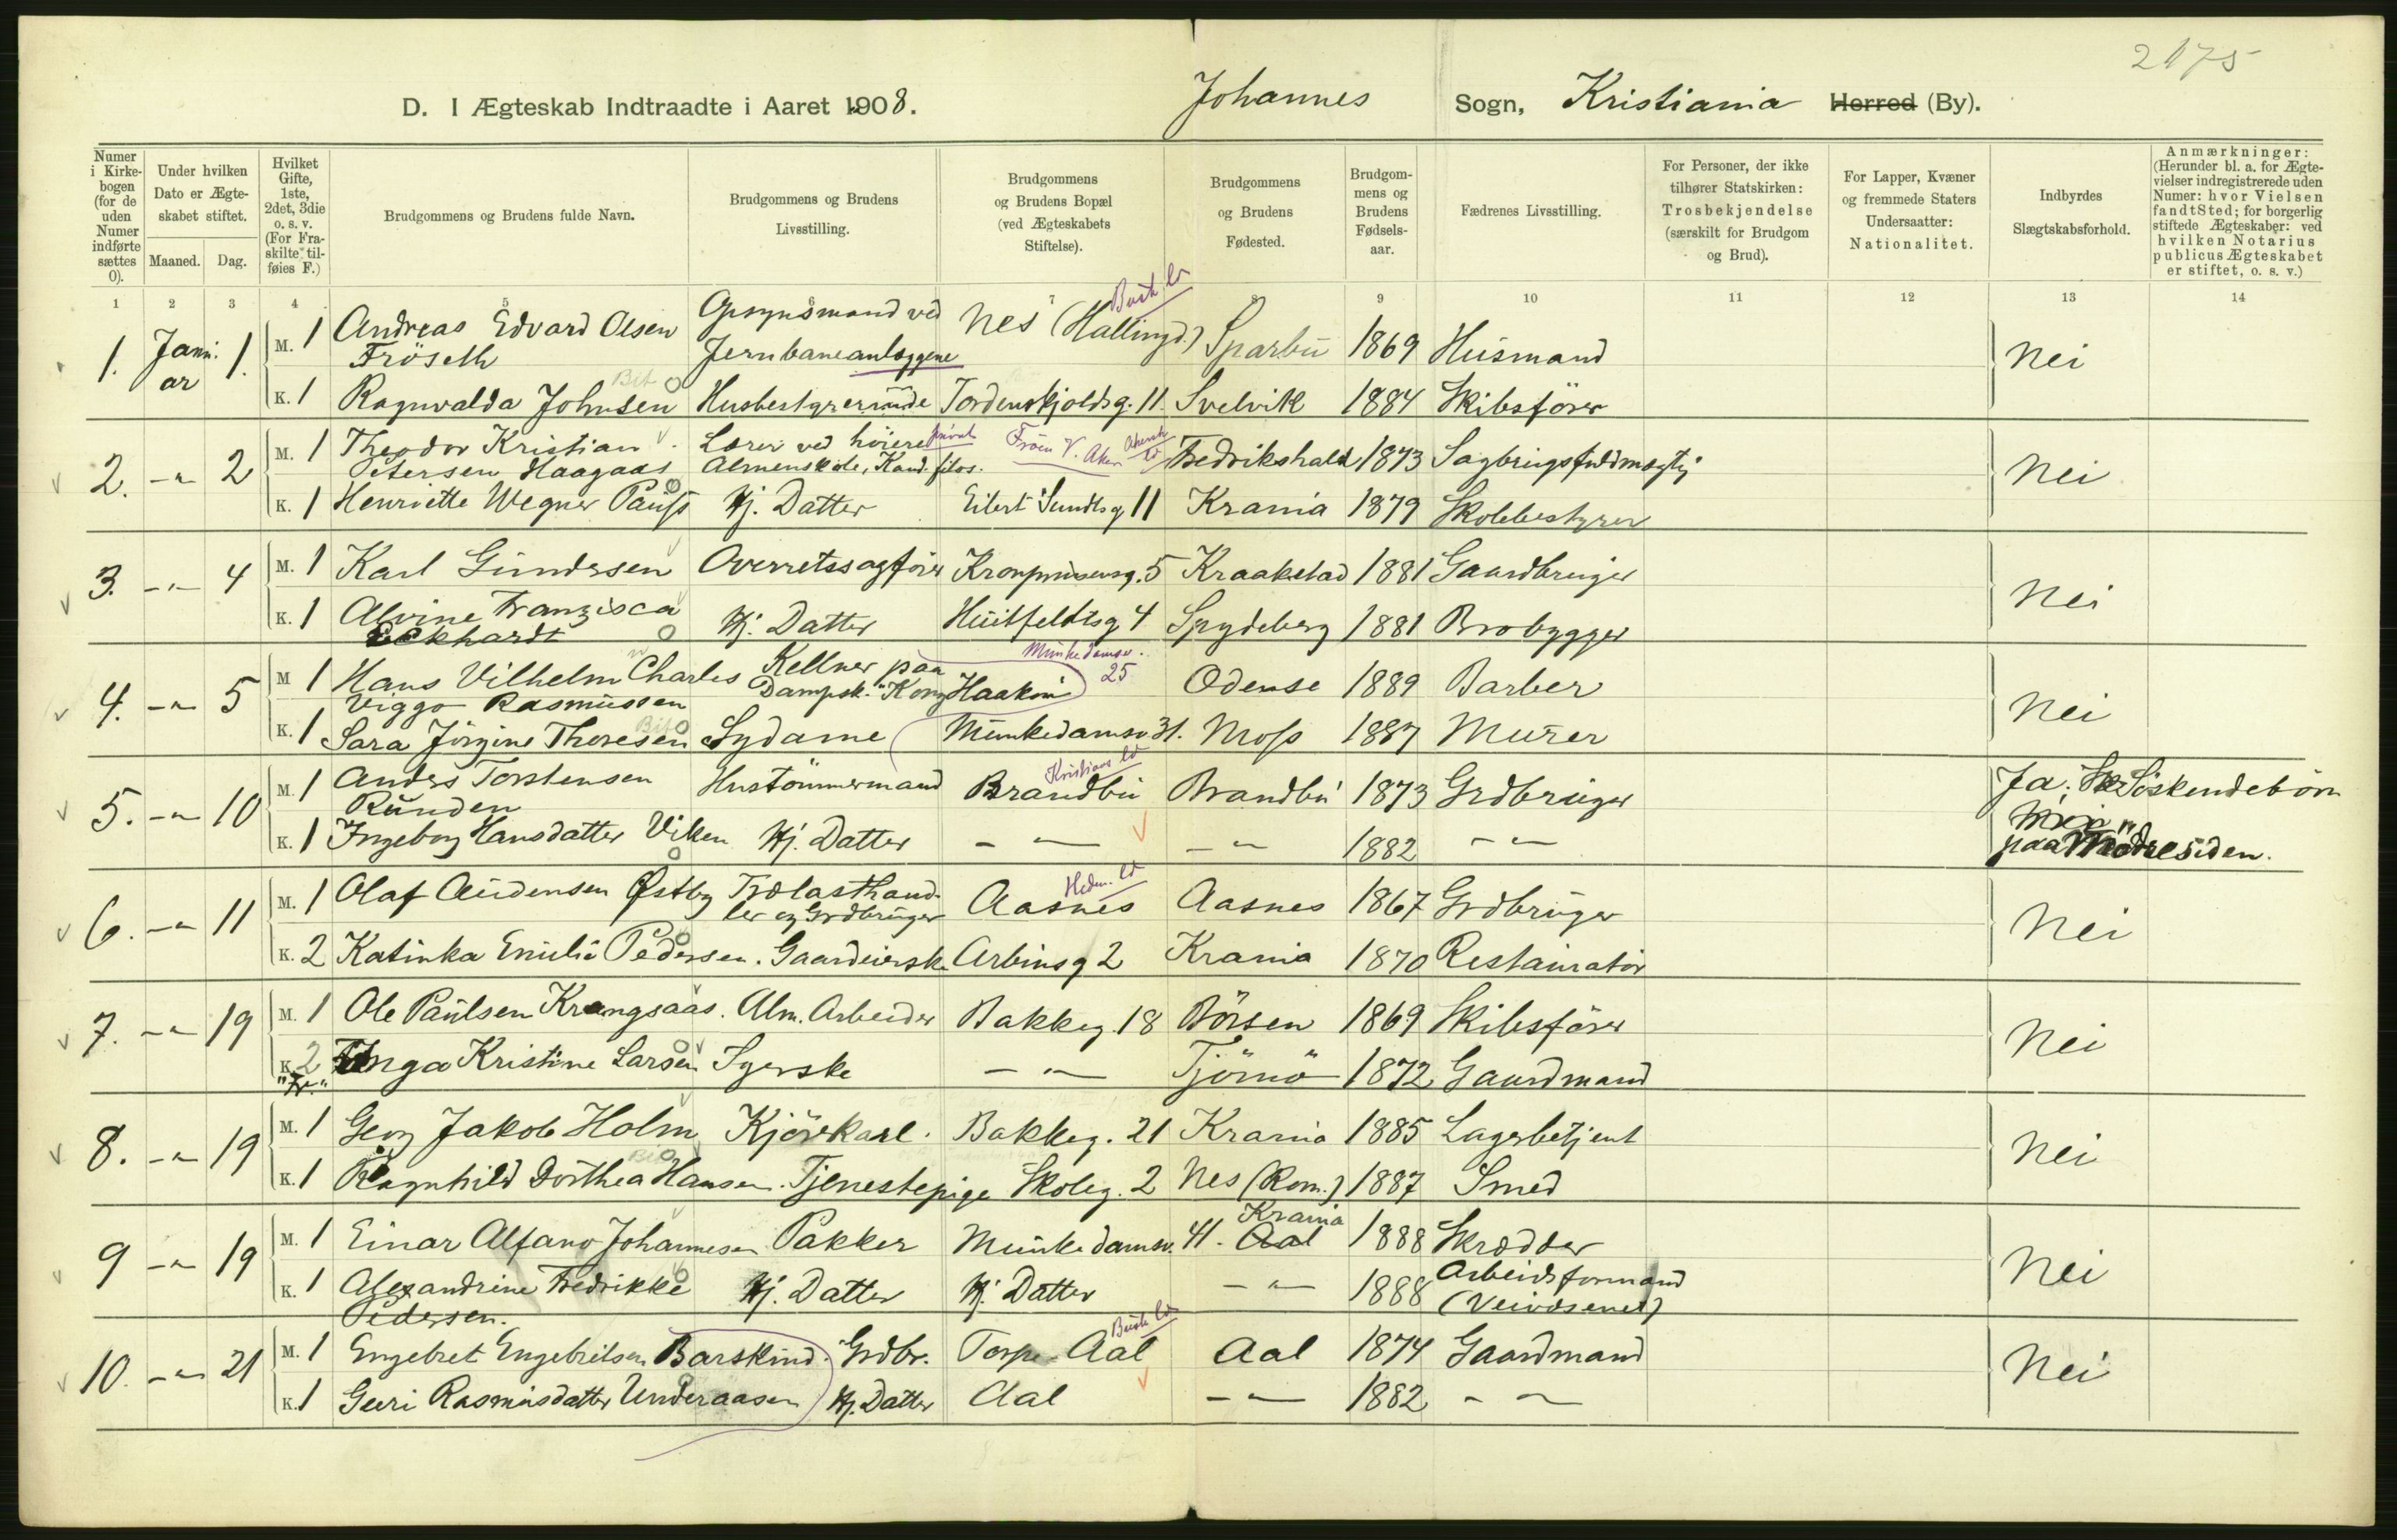 2175
D. I Ægteskab Indtraadte i Aaret 1908. Johannes Sogn, Kristiania Herred (By).
Numer i Kirkebogen (for de uden Numer indførte sættes 0).
Under hvilken Dato er Ægteskabet stiftet.
Maaned. Dag.
Hvilket Gifte, 1ste, 2det, 3die o. s. v. (For Fraskilte tilføies F.)
Brudgommens og Brudens fulde Navn.
Brudgommens og Brudens Livsstilling.
Brudgommens og Brudens Bopæl (ved Ægteskabets Stiftelse).
Brudgommens og Brudens Fødested.
Brudgommens og Brudens Fødselsaar.
Fædrenes Livsstilling.
For Personer, der ikke tilhører Statskirken: Trosbekjendelse (særskilt for Brudgom og Brud).
For Lapper, Kvæner og fremmede Staters Undersaatter: Nationalitet.
Indbyrdes Slægtskabsforhold.
Anmærkninger: (Herunder bl. a. for Ægtevielser indregistrerede uden Numer: hvor Vielsen fandt Sted; for borgerlig stiftede Ægteskaber: ved hvilken Notarius publicus Ægteskabet er stiftet, o. s. v.)
1 2 3 4 5 6 7 8 9 10 11 12 13 14
1. Januar 1. M. 1 Andreas Edvard Olsen Fröseth Opsynsmand ved Jernbaneanlæggene Nes (Hallingd.) Sparbu 1869 Husmand Nei
K. 1 Ragnvalda Johnsen Husbestyrerinde Tordenskjoldsg. 11. Svelvik 1884 Skibsfører
2. -"- 2 M. 1 Theodor Kristian Petersen Haagaas Lærer ved höiere privat Almenskole, Kand. filos. Fröen V. Aker Fredrikshald 1873 Sagbrugsfuldmægtig Nei
K. 1 Henriette Wegner Pauss Hj. Datter Eilert Sundtsg 11 Krania 1879 Skolebestyrer
3. -"- 4 M. 1 Karl Gundersen Overretssagfører Kronprinsensg. 5 Kraakstad 1881 Gaardbruger Nei
K. 1 Alvine Franzisca Eckhardt Hj. Datter Huitfeldtsg 4 Spydeberg 1881 Brobygger
4. -"- 5 M 1 Hans Vilhelm Charles Viggo Rasmussen Kellner paa Dampsk. "Kong Haakon" Munkedamsv. 25 Odense 1889 Barber Nei
K. 1 Sara Jörgine Thoresen Sydame Munkedamsv 31. Moss 1887 Murer
5. -"- 10 M. 1 Anders Torstensen Runden Hustömmermand Brandbu Brandbu 1873 Grdbruger Ja; Söskendebörn paa Mödresiden.
K. 1 Ingeborg Hansdatter Viken Hj. Datter -"- -"- 1882 -"-
6. -"- 11 M. 1 Olaf Audensen Østby Trælasthandler og Grdbruger Aasnes Aasnes 1867 Grdbruger Nei
K. 2 Katinka Emilie Pedersen. Gaardeierske Arbinsg 2 Krania 1870 Restauratør
7. -"- 19 M. 1 Ole Paulsen Krangsaas. Alm. Arbeider Bakkeg. 18 Börsen 1869 Skibsfører Nei
K. 2 "Fr." Inga Kristine Larsen Syerske -"- Tjömö 1872 Gaardmand
8. -"- 19 M. 1 Georg Jakob Holm Kjörekarl. Bakkeg. 21 Krania 1885 Lagerbetjent Nei
K. 1 Ragnhild Dorthea Hansen. Tjenestepige Skoleg. 2 Nes (Rom.) 1887 Smed
9 -"- 19 M. 1 Einar Alfano Johannesen Pakker Munkedamsv. 41. Aal Krania 1888 Skrædder Nei
K. 1 Alexandrine Fredrikke Pedersen. Hj. Datter Hj. Datter -"- 1888 Arbeidsformand (Veivæsenet)
10. -"- 21 M. 1 Engebret Engebretsen Barskind. Grdbr. Torpe Aal Aal 1874 Gaardmand Nei
K. 1 Guri Rasmusdatter Underaasen Hj. Datter Aal -"- 1882 -"-